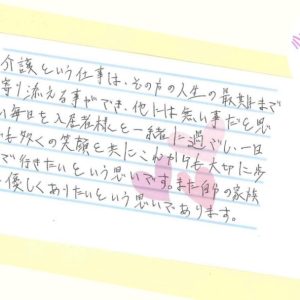 介護という仕事は、その方の人生の最期まで
寄り添える事ができ、他には無い事だと思
い毎日を入居者様と一緒に過ごし、一日
でも多くの笑顔を共にこれからも大切に歩
で行きたいという思いです。また自分の家族
優しくありたいという思いであります。